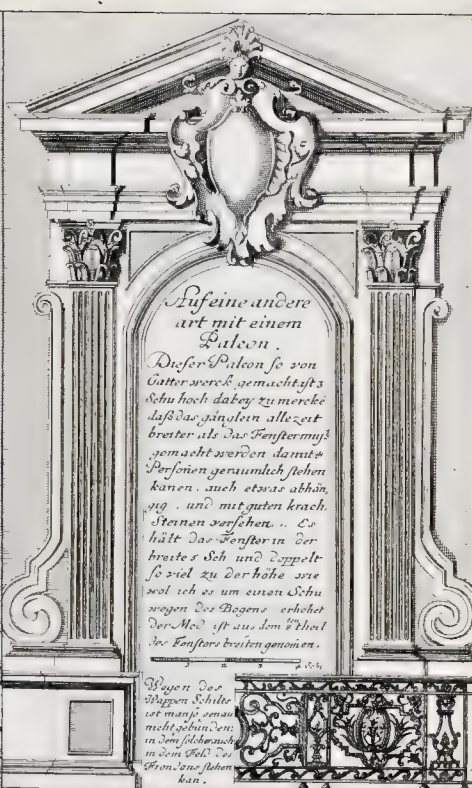 Auf eine andere
art mit einem
Palcon.
Dieser Palcon so von
Gatter werck gemacht ist 3
Schu hoch dabey zu mercke
daß das gänglein alle zeit
breiter als das Fenster muß
gemacht werden damit
Personen geraumlich stehen
kanen. auch etwas abhän,
gig. und mit guten krach,
Steinen versehen.. Es
hält das Fenster in der
breite 5 Sch und doppelt
so viel zu der höhe wie
wol ich es um einen Schu
wegen des Bogens erhöhet
der Mod ist aus dem theil
des Fensters breiten genom̄en.
Wegen des
Wappen Schilts
ist man so genau
nicht gebunden:
in dem solcher auch
in dem Feld des
Frondons stehen
kan.